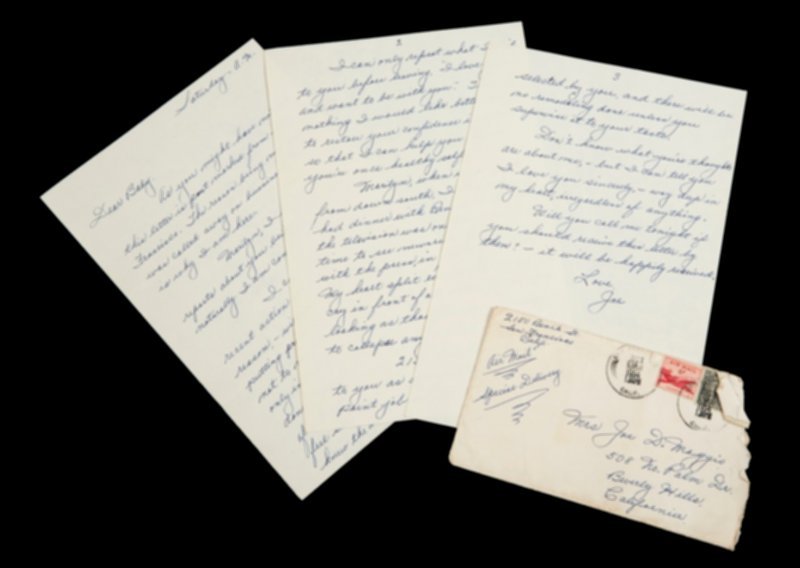 Saturday - A.M.
Dear Baby,
As you might have
this letter is post marked from
Francisco. The reason being
was called away on business
is why I am here.
Marilyn, I
reports about you
naturally I am con
I c
recent action
reason, - wi
putting
not to
only i
don
of
fore
know the
2
I can only repeat what I
to you before leaving. "I love
and want to be with you." T
nothing I would like bette
to restore your confidence
so that I can help you
you're once healthy
Marilyn, when
from down south, I
had dinner with
the television was on
time to see
with the press, in
My heart split
cry in front of a
looking as tho
to collapse any
21
to you as
Paint job
3
selected by you, and there will be
no remodeling done unless you
supervise it to your taste.
Don't know what you're thoughts
are about me, - but I can tell you
I love you sincerely, - way deep in
my heart, irregardless of anything.
Will you call me tonight if
you should receive this letter by
then? - it will be happily received.
Love
Joe
2150 Beach St.
San Francisco
Calif.
Air Mail
Special Delivery
AIR MAIL
Mrs Joe Di Maggio
508 No. Palm Dr.
Beverly Hills.
California